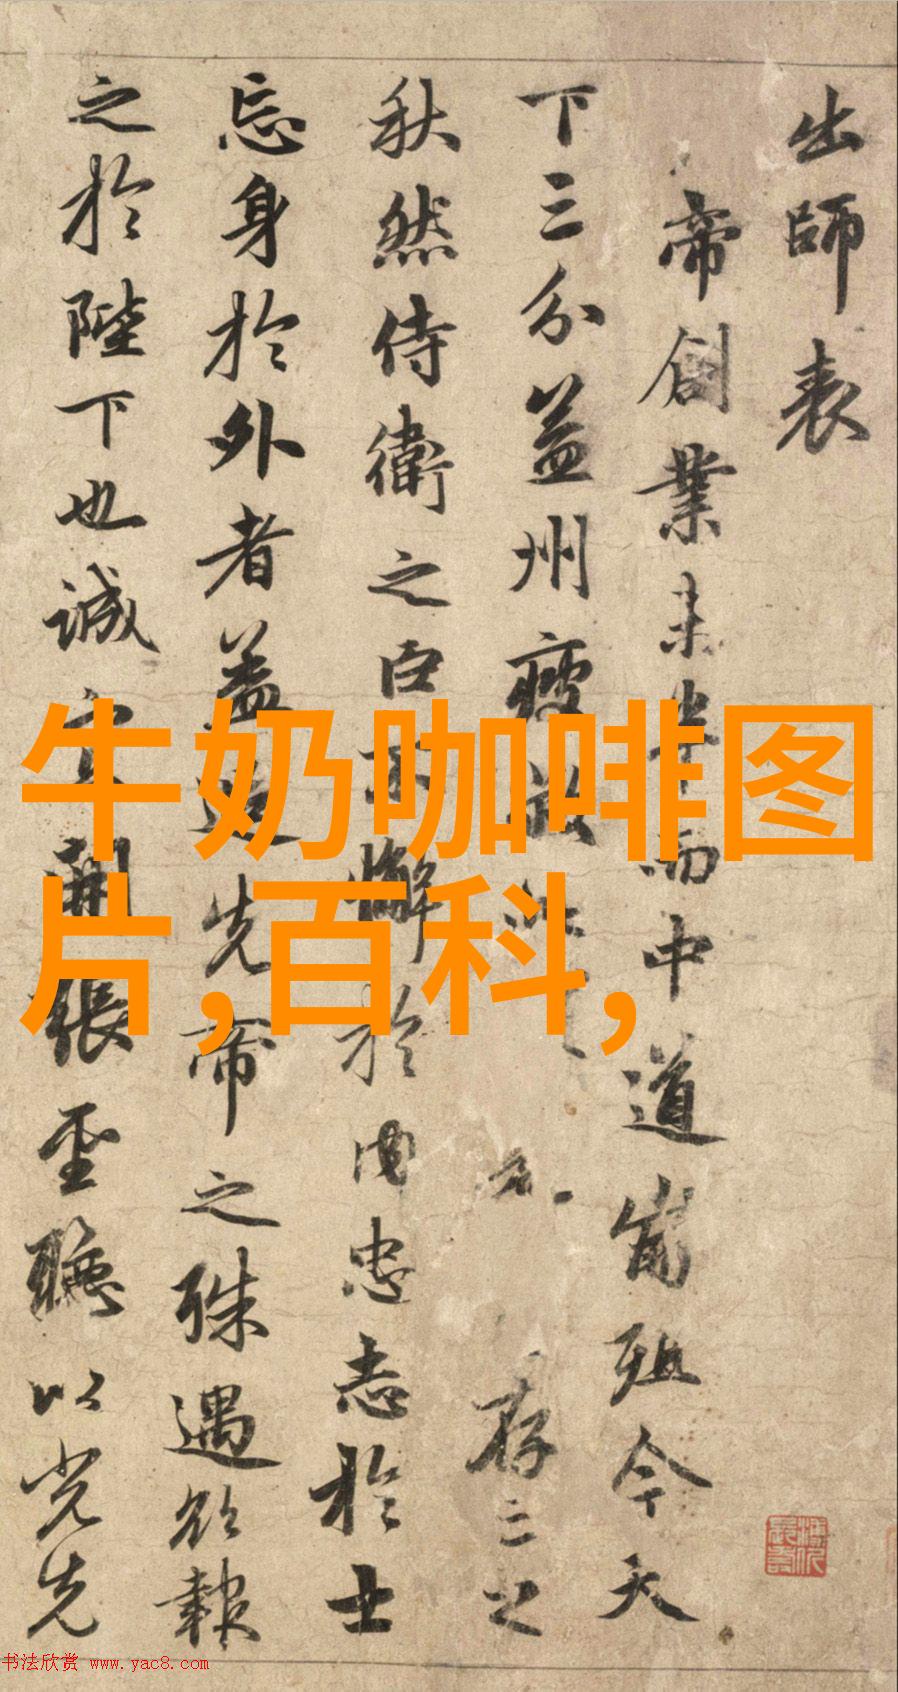 出師表
帝創業未半而中道崩殂今天
下三分益州疲敝存亡之
秋然侍衛之臣不懈於内忠志於士
忘身於外者蓋追先帝之殊遇欲報
之於陛下也誠宜開張聖聽以光先
牛奶咖啡图
片,百科,
书法欣赏 www.yac8.com